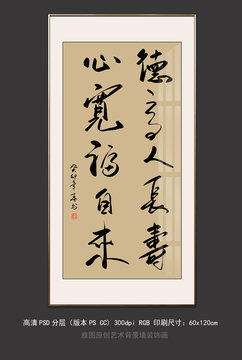 德高人長壽
心寬福自來
癸卯年
高清PSD分层（版本PS CC）300dpi RGB 印刷尺寸：60x120cm
雅图原创艺术背景墙装饰画